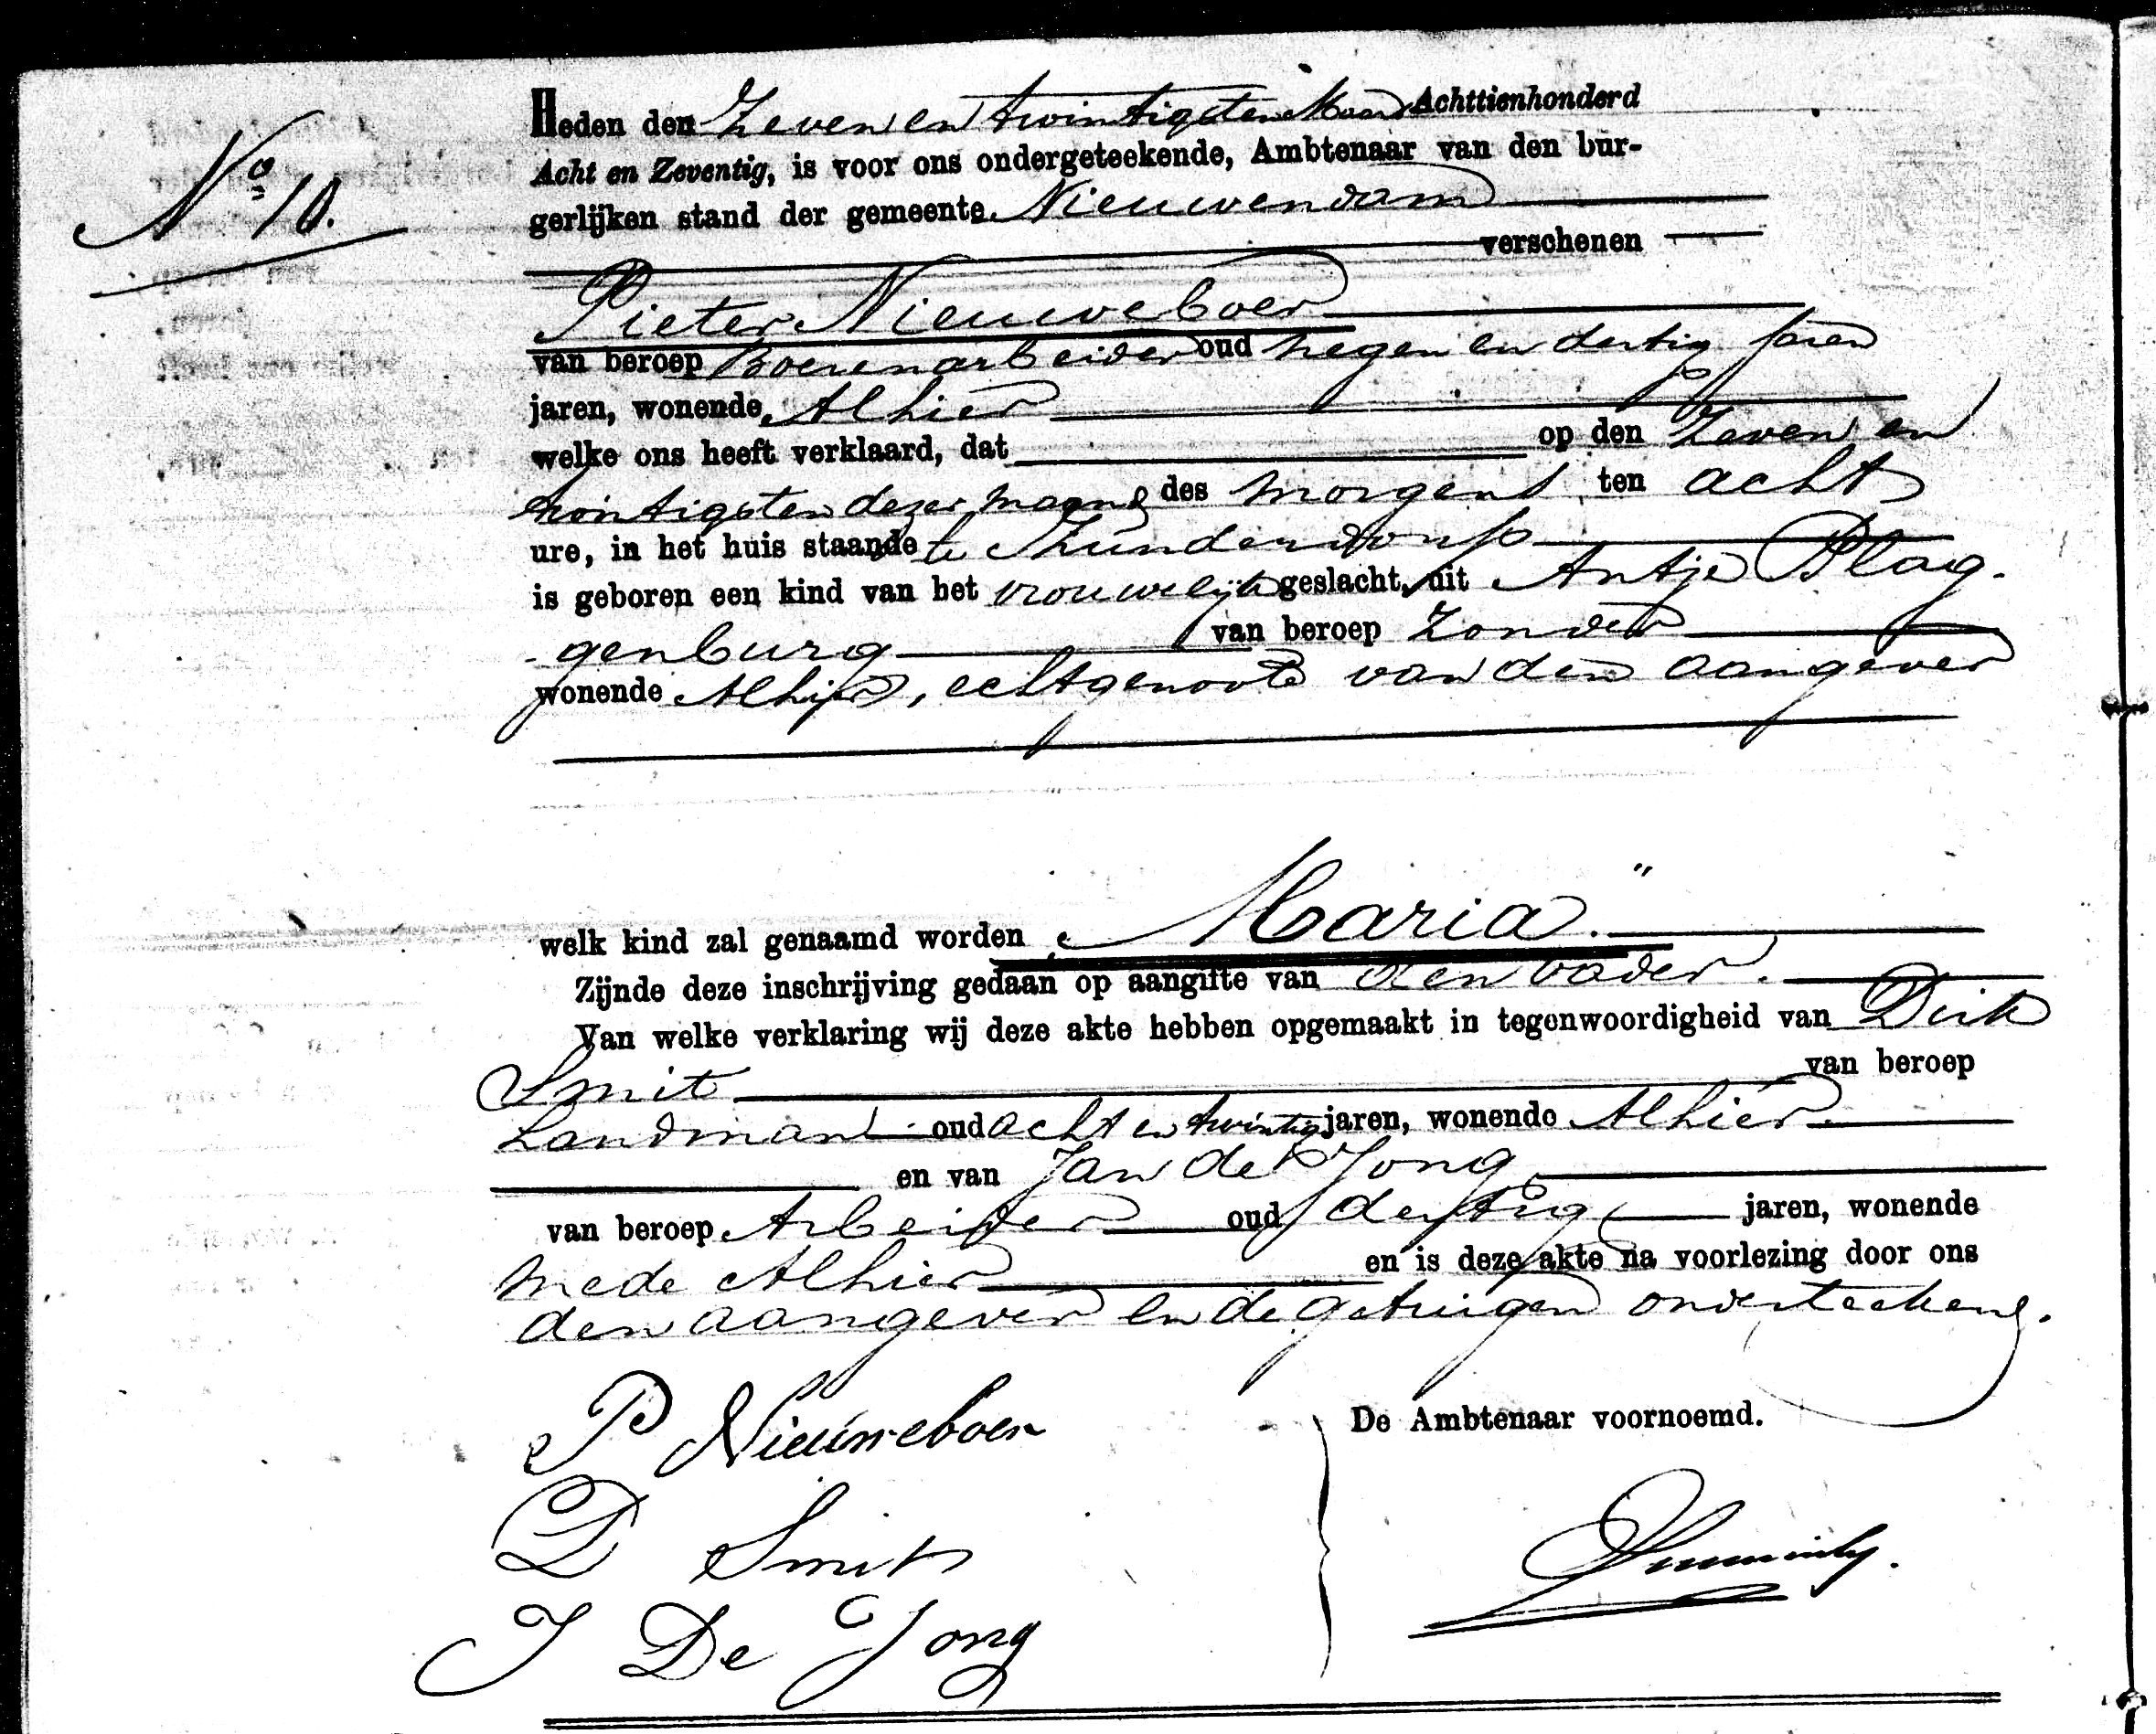 No 10.
Heden den Zeven en twintigsten Maart Achttienhonderd
Acht en Zeventig, is voor ons ondergeteekende, Ambtenaar van den bur-
gerlijken stand der gemeente Nieuwendam
verschenen
Pieter Nieuweboer
van beroep Boerenarbeider oud negen en dertig jaren
jaren, wonende Alhier
welke ons heeft verklaard, dat op den Zeven en
twintigsten dezer maand des morgens ten acht
ure, in het huis staande te Zunderdorp
is geboren een kind van het vrouwelijk geslacht, uit Antje Plag-
-genburg van beroep Zonder
wonende Alhier, echtgenoote van den aangever
welk kind zal genaamd worden „Maria"
Zijnde deze inschrijving gedaan op aangifte van den vader.
Van welke verklaring wij deze akte hebben opgemaakt in tegenwoordigheid van Dirk
Smit van beroep
Landman oud acht en twintig jaren, wonende Alhier
en van Jan de Jong
van beroep Arbeider oud dertig jaren, wonende
mede Alhier en is deze akte na voorlezing door ons
den aangever en de getuigen onderteekend.
P Nieuweboer
De Ambtenaar voornoemd.
D Smit
J De Jong